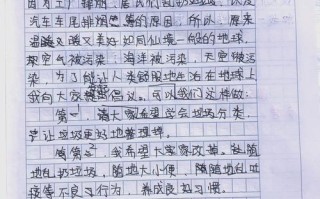 因为工厂排烟，居民们乱扔垃圾，以及
汽车车尾排烟等的原因，所以，原来
温暖又暖又美好如同仙境一般的地球
被空气被污染，海洋被污染，天空被污
染，为了能让人类能生活在地球上
我向大家提出倡议。可以我们这样做：
第一，请大家希望学会垃圾分类，
学让垃圾更好地整理掉。
第二，我希望大家改掉。乱随
地乱扔垃圾，随地大小便，随随地乱吐
痰等不良习行为，养成良好习惯。